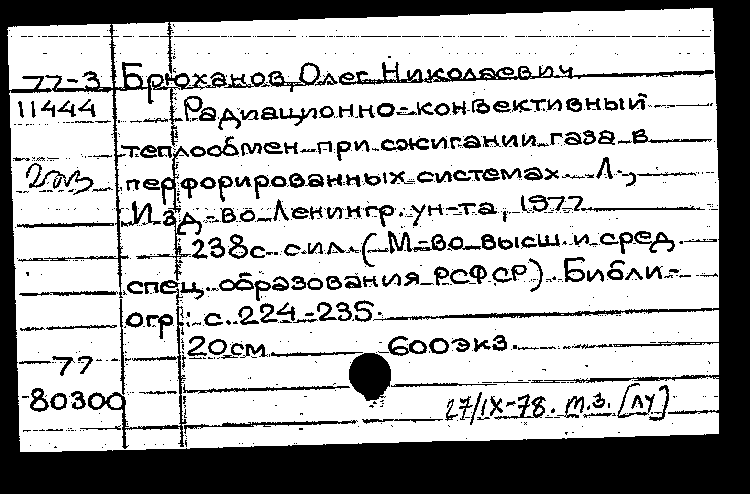 77-3 Брюханов, Олег Николаевич
11444 Радиационно-конвективный
теплообмен при сжигании газа в
перфорированных системах. Л.,
Изд-во Ленингр. ун-та, 1977.
238с. с ил. (М-во высш. и сред.
спец. образования РСФСР). Библи-
огр.: с. 224-235.
20см. 600экз.
77
80300
27/IX-78. т.з. [ЛУ]